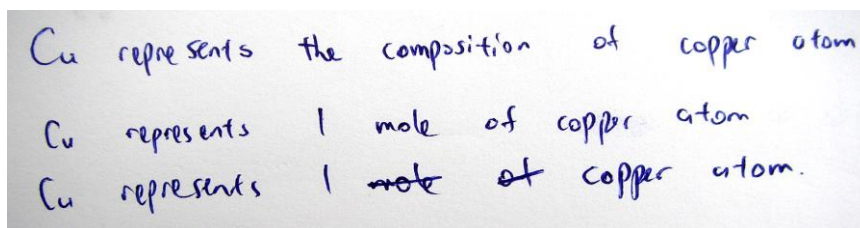 Cu represents the composition of copper atom
Cu represents 1 mole of copper atom
Cu represents 1 mole of copper atom.